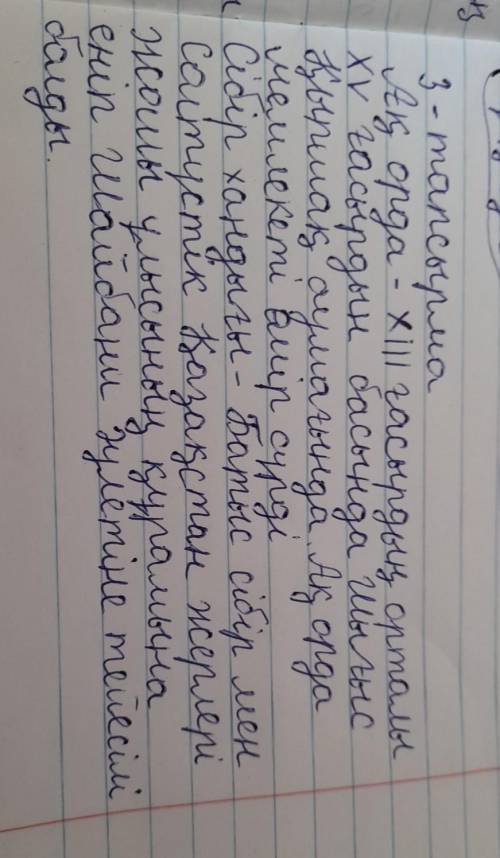 3 - тапсырма
Ақ орда - XIII ғасырдың орталы
XV ғасырдын басында шығыс
Қыпшақ аумағында Ақ орда
мемлекеті өмір сүрді
Сібір хандығы - Батыс сібір мен
солтүстік Қазақстан жерлері
Жошы ұлысының құрамына
еніп Шайбани әулетіне тейесілі
болды.